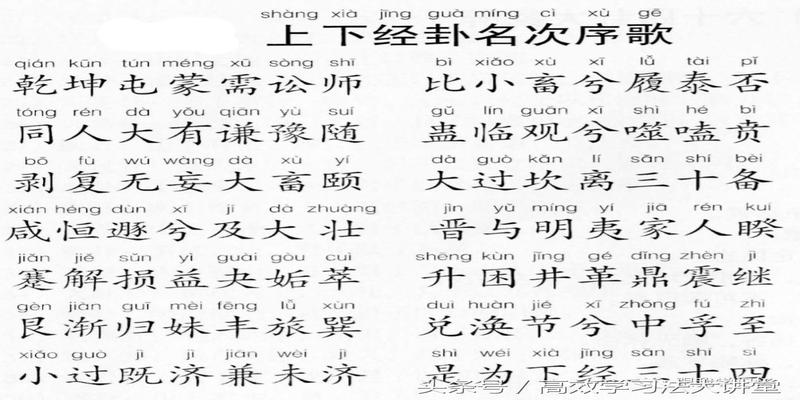 shàng xià jīng guà míng cì xù gē
上下经卦名次序歌
qián kūn tún méng xū sòng shī bì xiǎo xù xī lǚ tài pǐ
乾坤屯蒙需讼师 比小畜兮履泰否
tóng rén dà yǒu qiān yù suí gǔ lín guān xī shì hé bì
同人大有谦豫随 蛊临观兮噬嗑贲
bō fù wú wàng dà xù yí dà guò kǎn lí sān shí bèi
剥复无妄大畜颐 大过坎离三十备
xián héng dùn xī jí dà zhuàng jìn yǔ míng yí jiā rén kuí
咸恒遯兮及大壮 晋与明夷家人睽
jiǎn jiě sǔn yì guài gòu cuì shēng kùn jǐng gé dǐng zhèn jì
蹇解损益夬姤萃 升困井革鼎震继
gèn jiàn guī mèi fēng lǚ xùn duì huàn jié xī zhōng fú zhì
艮渐归妹丰旅巽 兑涣节兮中孚至
xiǎo guò jì jì jiān wèi jì shì wéi xià jīng sān shí sì
小过既济兼未济 是为下经三十四
头条号 / 高效学习法大讲堂